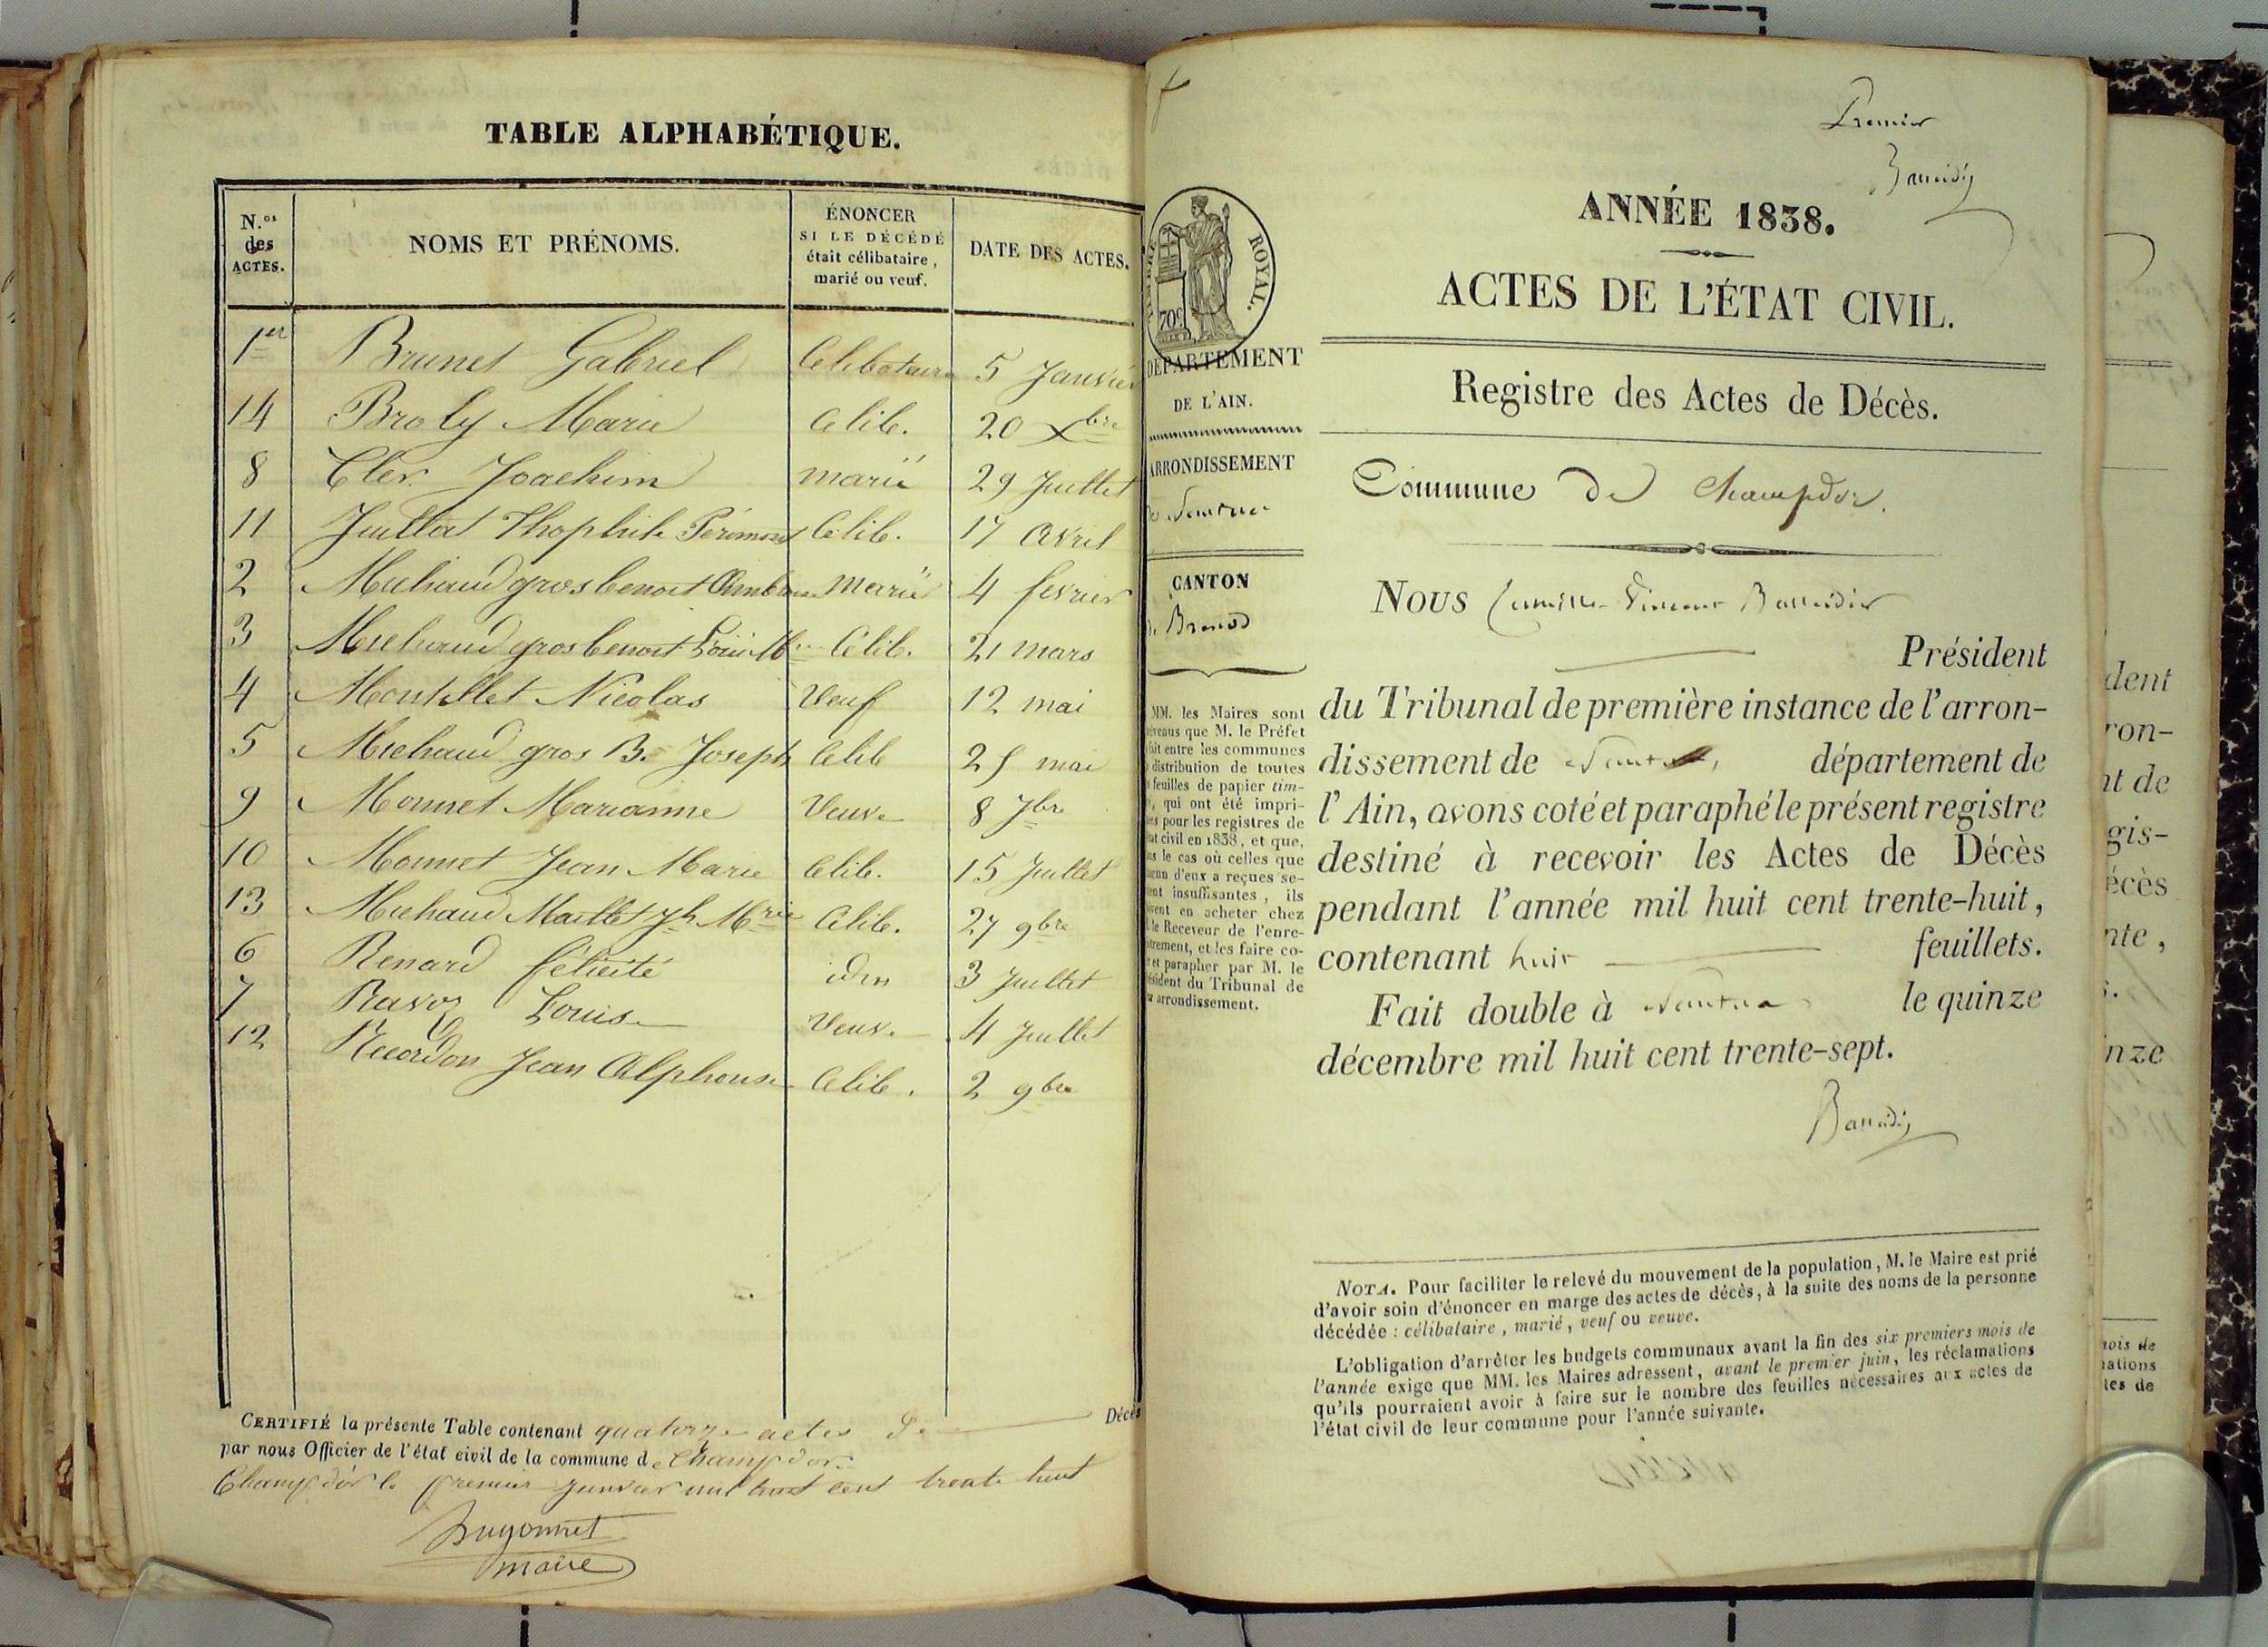 TABLE ALPHABÉTIQUE.
N.os des ACTES.
NOMS ET PRÉNOMS.
ÉNONCER SI LE DÉCÉDÉ était célibataire, marié ou veuf.
DATE DES ACTES.
1er Brunet Gabriel Celibataire 5 Janvier
14 Broly Marie Celib. 20 Xbre
8 Cler Joachim marié 29 Juillet
11 Juillat Celib. 17 Avril
2 Michaud gros benoit marié 4 fevrier
3 Michaud gros benoit Célib. 21 mars
4 Montillet Nicolas Veuf 12 mai
5 Michaud gros B. Joseph Celib 25 mai
9 Monnet Marianne Veuve 8 7bre
10 Monnet Jean Marie Celib. 15 Juillet
13 Michaud Maillet Jh Mrie Celib. 27 9bre
6 Renard félicité idem 3 Juillet
7 Ravoz Louise Veuve 4 Juillet
12 Recordon Jean Alphonse Celib. 2 9bre
CERTIFIÉ la présente Table contenant quatorze actes de Décès
par nous Officier de l'état civil de la commune de Champdor.
Champdor le premier Janvier mil huit cent trente huit
Dugonnet
maire
Premier
ROYAL.
70c
DÉPARTEMENT
DE L'AIN.
ARRONDISSEMENT
de Nantua
CANTON
de Brenod
MM. les Maires sont
prévenus que M. le Préfet
fait entre les communes
distribution de toutes
feuilles de papier tim-
qui ont été impri-
pour les registres de
état civil en 1838, et que,
le cas où celles que
d'eux a reçues se-
insuffisantes, ils
en acheter chez
le Receveur de l'enre-
gistrement, et les faire co-
et parapher par M. le
Président du Tribunal de
arrondissement.
ANNÉE 1838.
ACTES DE L'ÉTAT CIVIL.
Registre des Actes de Décès.
Commune de Champdor.
Nous Camille Vincent Baudier
Président
du Tribunal de première instance de l'arron-
dissement de Nantua, département de
l'Ain, avons coté et paraphé le présent registre
destiné à recevoir les Actes de Décès
pendant l'année mil huit cent trente-huit,
contenant huit feuillets.
Fait double à Nantua le quinze
décembre mil huit cent trente-sept.
NOTA. Pour faciliter le relevé du mouvement de la population, M. le Maire est prié
d'avoir soin d'énoncer en marge des actes de décès, à la suite des noms de la personne
décédée : célibataire, marié, veuf ou veuve.
L'obligation d'arrêter les budgets communaux avant la fin des six premiers mois de
l'année exige que MM. les Maires adressent, avant le premier juin, les réclamations
qu'ils pourraient avoir à faire sur le nombre des feuilles nécessaires aux actes de
l'état civil de leur commune pour l'année suivante.
dent
ron-
nt de
gis-
écès
nte,
s.
nze
mois de
mations
tes de